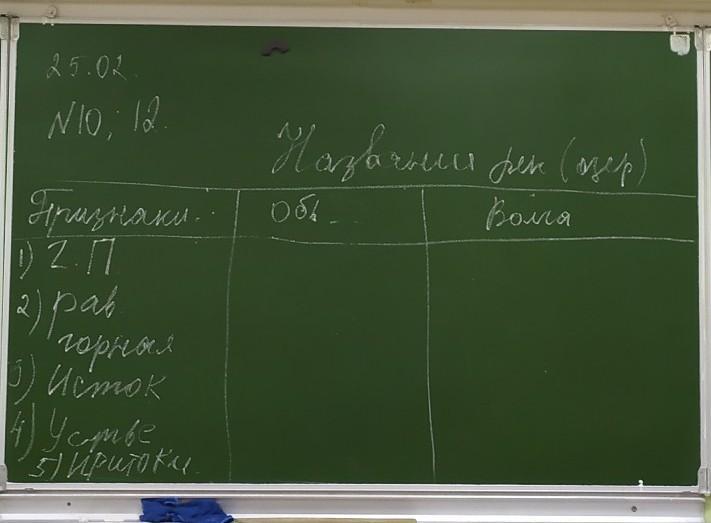 25.02.
N10; 12.
Названия рек (озер)
Признаки.. Обь Волга
1) Г.П
2) рав
горная
3) Исток
4) Устье
5) Притоки.